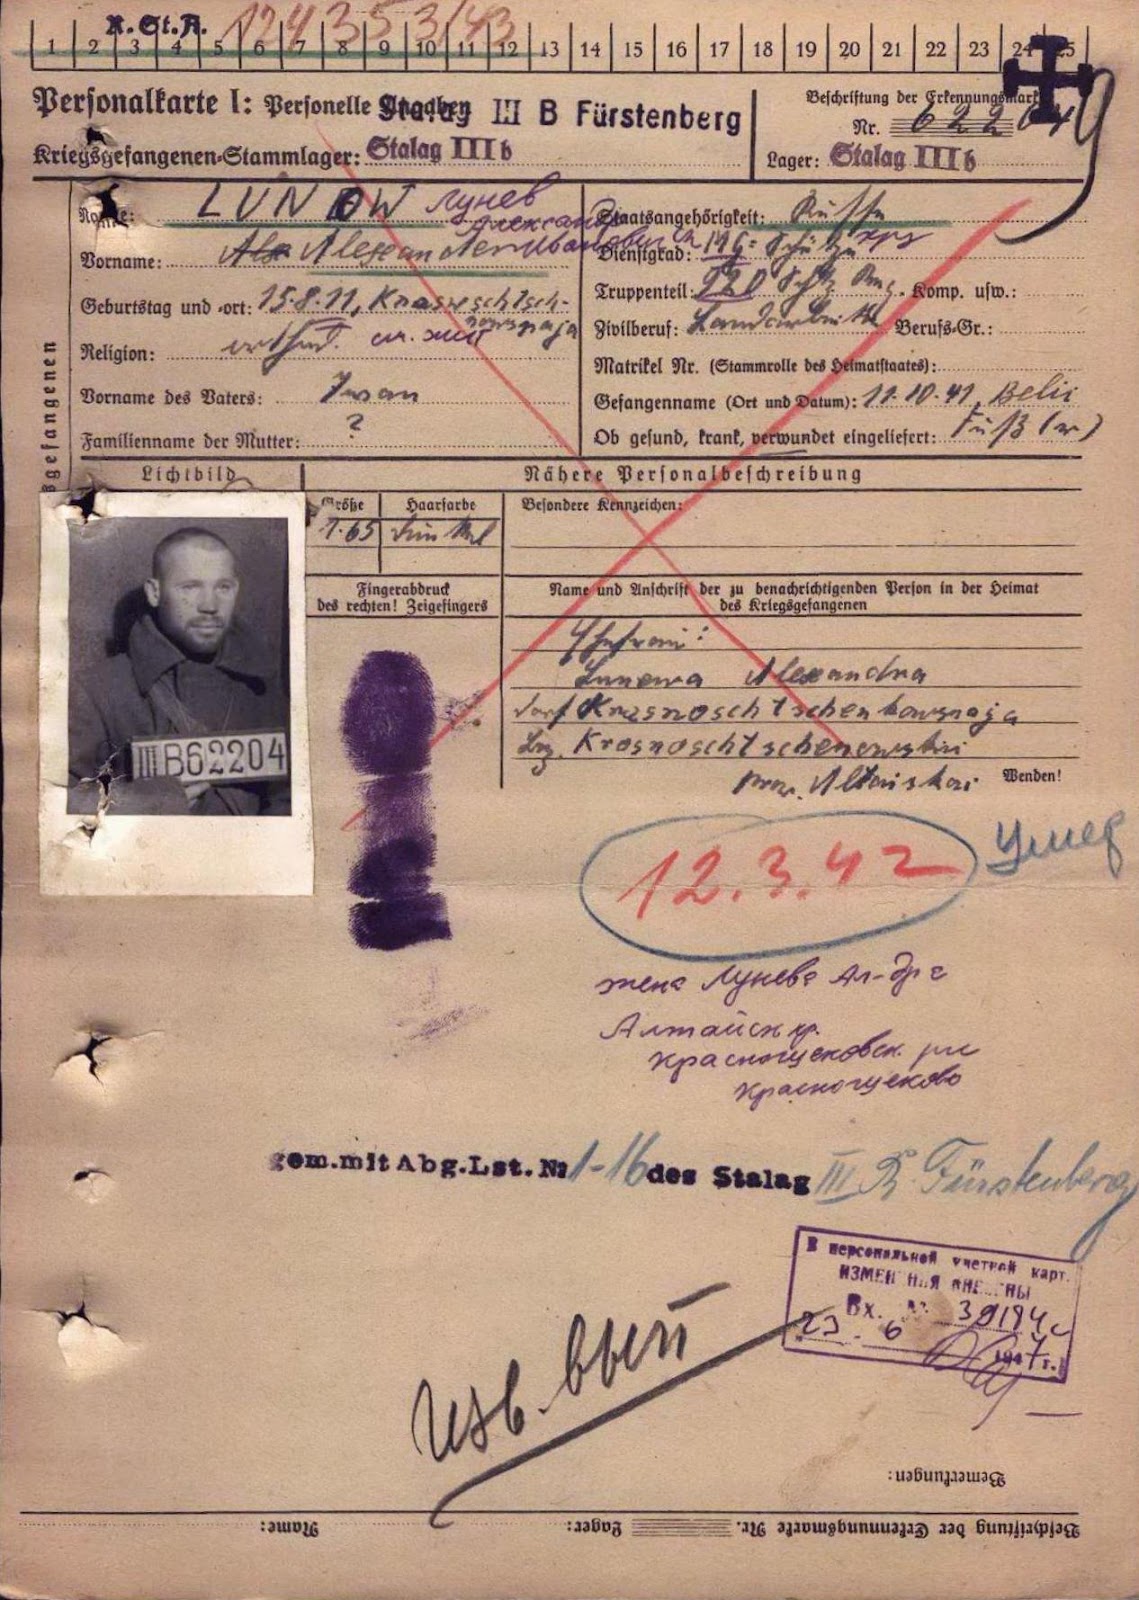 K. St. A. 124353/43
1 2 3 4 5 6 7 8 9 10 11 12 13 14 15 16 17 18 19 20 21 22 23 24 25
Personalkarte I: Personelle Angaben
Stalag III B Fürstenberg
Beschriftung der Erkennungsmarke
Nr. 62204
Kriegsgefangenen-Stammlager: Stalag III b
Lager: Stalag III b
Name: LUNOW Лунев
Александр
Vorname: Alexander Иванович
Geburtstag und -ort: 15.8.11, Krasneschtsch-
nowskaja
Religion:
Vorname des Vaters: Iwan
Familienname der Mutter: ?
Staatsangehörigkeit: Russe
Dienstgrad:
Truppenteil: Komp. usw.:
Zivilberuf: Landarbeiter Berufs-Gr.:
Matrikel Nr. (Stammrolle des Heimatstaates):
Gefangennahme (Ort und Datum): 11.10.41, Belii
Ob gesund, krank, verwundet eingeliefert: Fuß (r)
gefangenen
Lichtbild
Nähere Personalbeschreibung
Größe Haarfarbe Besondere Kennzeichen:
1.65 dunkel
Fingerabdruck
des rechten! Zeigefingers
Name und Anschrift der zu benachrichtigenden Person in der Heimat
des Kriegsgefangenen
Ehefrau:
Lunewa Alexandra
dorf Krasnoschtschenkowskaja
Krosnoschtschenewski
prow. Altaiskai Wenden!
III B 62204
12.3.42 Умер
жена Лунева Ал-дра
Алтайск кр.
Краснощековск. рн
Краснощеково
gem. mit Abg. Lst. № 1-16 des Stalag III B Fürstenberg
В персональной учетной карт.
ИЗМЕНЕНИЯ ВНЕСЕНЫ
Вх. № 30194с
"23. 6 1947 г.
Изв. вып
Bemerkungen:
Beschriftung der Erkennungsmarke Nr. Lager: Name: